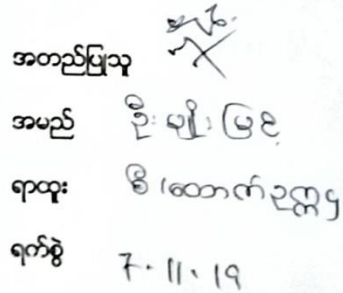 အတည်ပြုသူ
အမည် ဦးမျိုးမြင့်
ရာထူး စီ/ထောက်ဥက္ကဌ
ရက်စွဲ 7.11.19